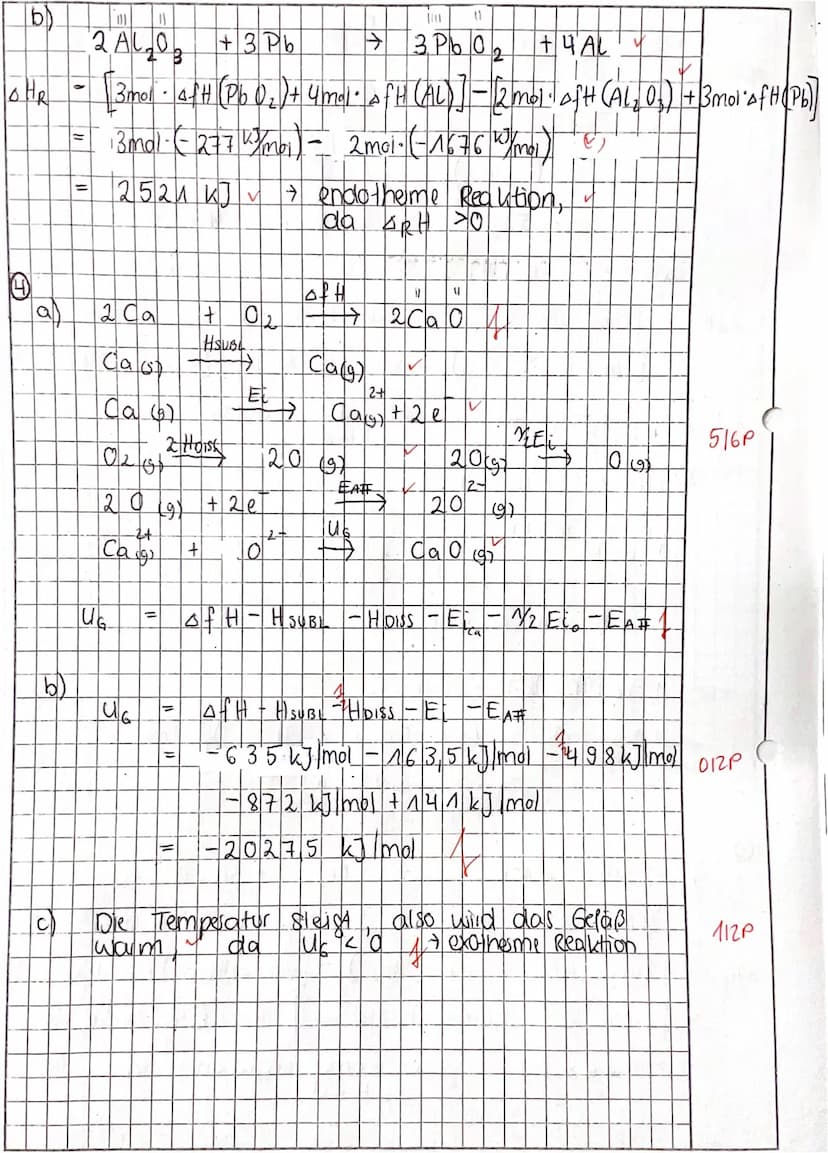 b) 2 Al₂O₃ + 3 Pb → 3 PbO₂ + 4 Al ✓
ΔHR = [3mol · ΔfH(PbO₂) + 4mol · ΔfH(Al)] - [2mol · ΔfH(Al₂O₃) + 3mol · ΔfH(Pb)]
= 3mol · (-277 kJ/mol) - 2mol · (-1676 kJ/mol) (✓)
= 2521 kJ ✓ → endotheme Reaktion, ✓
da ΔRH >0
4
a) 2 Ca + O₂ ΔfH → 2 CaO
Ca (s) HSUBL → Ca(g) ✓
Ca (g) Ei → Ca²⁺(g) + 2e⁻ ✓
5/6P
O₂ (g) 2 HDISS → 2 O (g) ✓ 2 O(g) ½Ei → O (g)
2 O (g) + 2e⁻ EAff → ✓ 2 O²⁻ (g)
Ca²⁺(g) + O²⁻ UG → CaO (g) ✓
UG = ΔfH - HSUBL - HDISS - EiCa - ½ EiO - EAff
b) UG = ΔfH - HSUBL - ½ HDISS - Ei - EAff
= -635 kJ/mol - 163,5 kJ/mol - ½ 498 kJ/mol
0/2P
-872 kJ/mol + 141 kJ/mol
= -2027,5 kJ/mol
c) Die Temperatur steigt, also wird das Gefäß
1/2P
warm, ✓ da UG < 0 → exotherme Reaktion